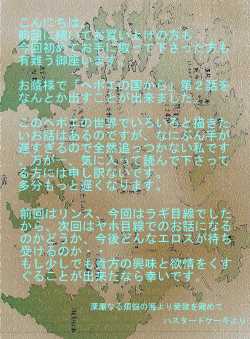 こんにちは。
前回に続いてお買い上げの方も
今回初めてお手に取って下さった方も
有難う御座います。
お蔭様で「ヘボエの国から」第２話を
なんとか出すことが出来ました。
このヘボエの世界でいろいろと描きた
いお話はあるのですが、なにぶん手が
遅すぎるので全然追っつかない私です
…万が一、気に入って読んで下さって
る方には申し訳ないです。
多分もっと遅くなります。
前回はリンス、今回はラギ目線でした
から、次回はヤホ目線でのお話になる
のかどうか、今後どんなエロスが待ち
受けるのか・
もし少しでも貴方の興味と欲情をくす
ぐることが出来たなら幸いです
深遠なる煩悩の海より愛欲を籠めて
ハスタードケーキより